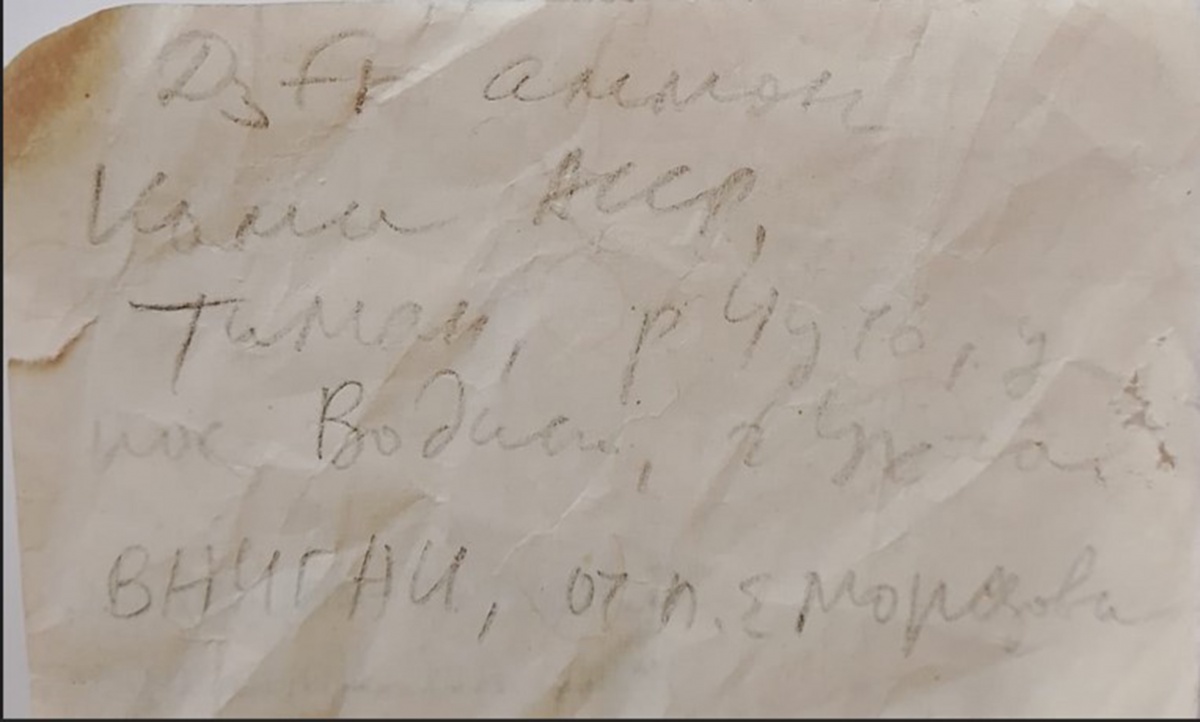 D₃ fr аммон
Коми АССР,
Тиман, р Чуть, у
пос Водный, г Ухта
ВНИГНИ, от П. Е Морозова